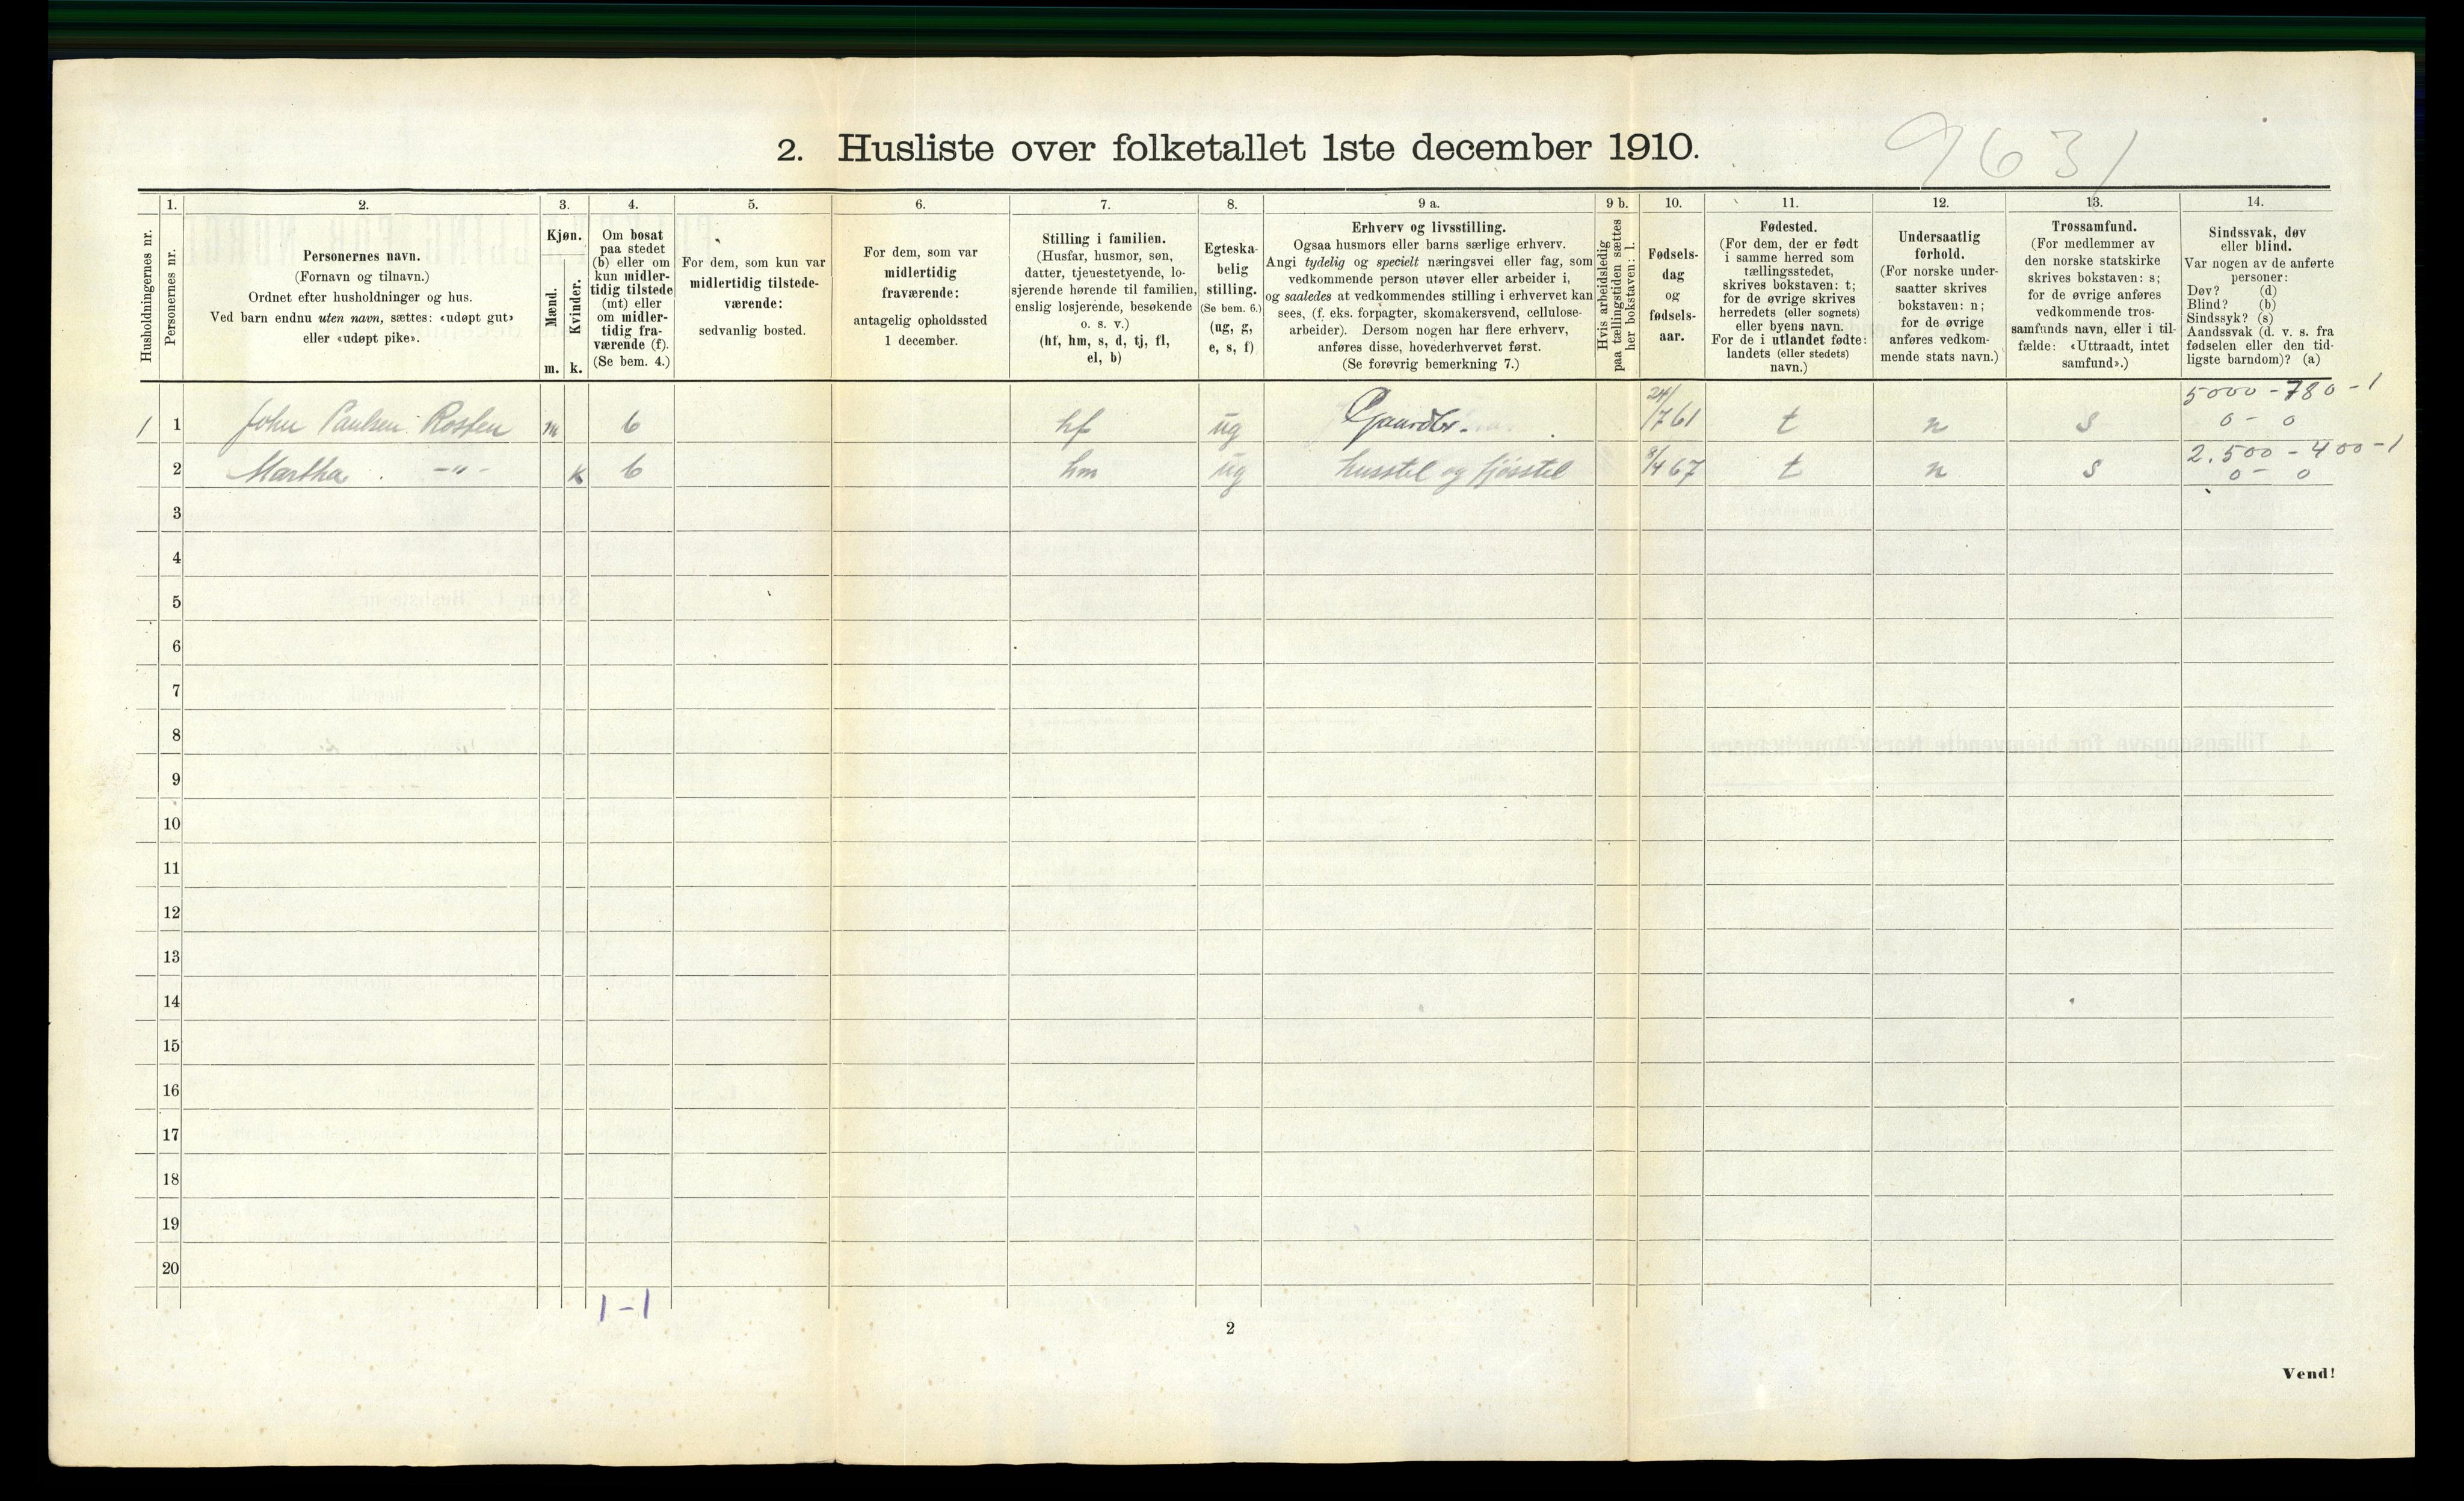 2. Husliste over folketallet 1ste december 1910.
9631
1. 2. 3. 4. 5. 6. 7. 8. 9 a. 9 b. 10. 11. 12. 13. 14.
Husholdningernes nr.
Personernes nr.
Personernes navn.
(Fornavn og tilnavn.)
Ordnet efter husholdninger og hus.
Ved barn endnu uten navn, sættes: «udøpt gut»
eller «udøpt pike».
Kjøn.
Mænd.
Kvinder.
m. k.
Om bosat
paa stedet
(b) eller om
kun midler-
tidig tilstede
(mt) eller
om midler-
tidig fra-
værende (f).
(Se bem. 4.)
For dem, som kun var
midlertidig tilstede-
værende:
sedvanlig bosted.
For dem, som var
midlertidig
fraværende:
antagelig opholdssted
1 december.
Stilling i familien.
(Husfar, husmor, søn,
datter, tjenestetyende, lo-
sjerende hørende til familien,
enslig losjerende, besøkende
o. s. v.)
(hf, hm, s, d, tj, fl,
el, b)
Egteska-
belig
stilling.
(Se bem. 6.)
(ug, g,
e, s, f)
Erhverv og livsstilling.
Ogsaa husmors eller barns særlige erhverv.
Angi tydelig og specielt næringsvei eller fag, som
vedkommende person utøver eller arbeider i,
og saaledes at vedkommendes stilling i erhvervet kan
sees, (f. eks. forpagter, skomakersvend, cellulose-
arbeider). Dersom nogen har flere erhverv,
anføres disse, hovederhvervet først.
(Se forøvrig bemerkning 7.)
Hvis arbeidsledig
paa tællingstiden sættes
her bokstaven: l.
Fødsels-
dag
og
fødsels-
aar.
Fødested.
(For dem, der er født
i samme herred som
tællingsstedet,
skrives bokstaven: t;
for de øvrige skrives
herredets (eller sognets)
eller byens navn.
For de i utlandet fødte:
landets (eller stedets)
navn.)
Undersaatlig
forhold.
(For norske under-
saatter skrives
bokstaven: n;
for de øvrige
anføres vedkom-
mende stats navn.)
Trossamfund.
(For medlemmer av
den norske statskirke
skrives bokstaven: s;
for de øvrige anføres
vedkommende tros-
samfunds navn, eller i til-
fælde: «Uttraadt, intet
samfund».)
Sindssvak, døv
eller blind.
Var nogen av de anførte
personer:
Døv? (d)
Blind? (b)
Sindssyk? (s)
Aandssvak (d. v. s. fra
fødselen eller den tid-
ligste barndom)? (a)
5000 - 780 - 1
1 1 John Paulsen Rosten m b hf ug Gaardbr. 24/7 61 t n s 0 - 0
2.500 - 400 - 1
2 Martha -"- k b hm ug husstel og fjøsstel 8/4 67 t n s 0 - 0
3
4
5
6
7
8
9
10
11
12
13
14
15
16
17
18
19
20
1-1
2
Vend!